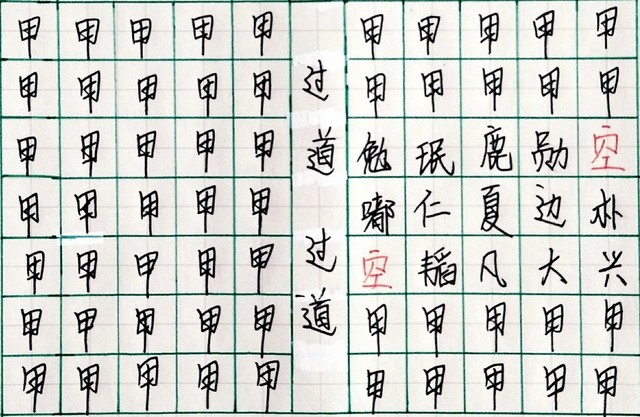 甲 甲 甲 甲 甲 甲 甲 甲 甲 甲
甲 甲 甲 甲 甲 过 甲 甲 甲 甲 甲
甲 甲 甲 甲 甲 道 勉 珉 鹿 勋 空
甲 甲 甲 甲 甲 嘟 仁 夏 边 朴
甲 甲 甲 甲 甲 过 空 韬 凡 大 兴
甲 甲 甲 甲 甲 道 甲 甲 甲 甲 甲
甲 甲 甲 甲 甲 甲 甲 甲 甲 甲